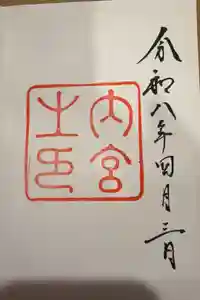 令和八年四月三日
内宮
之印